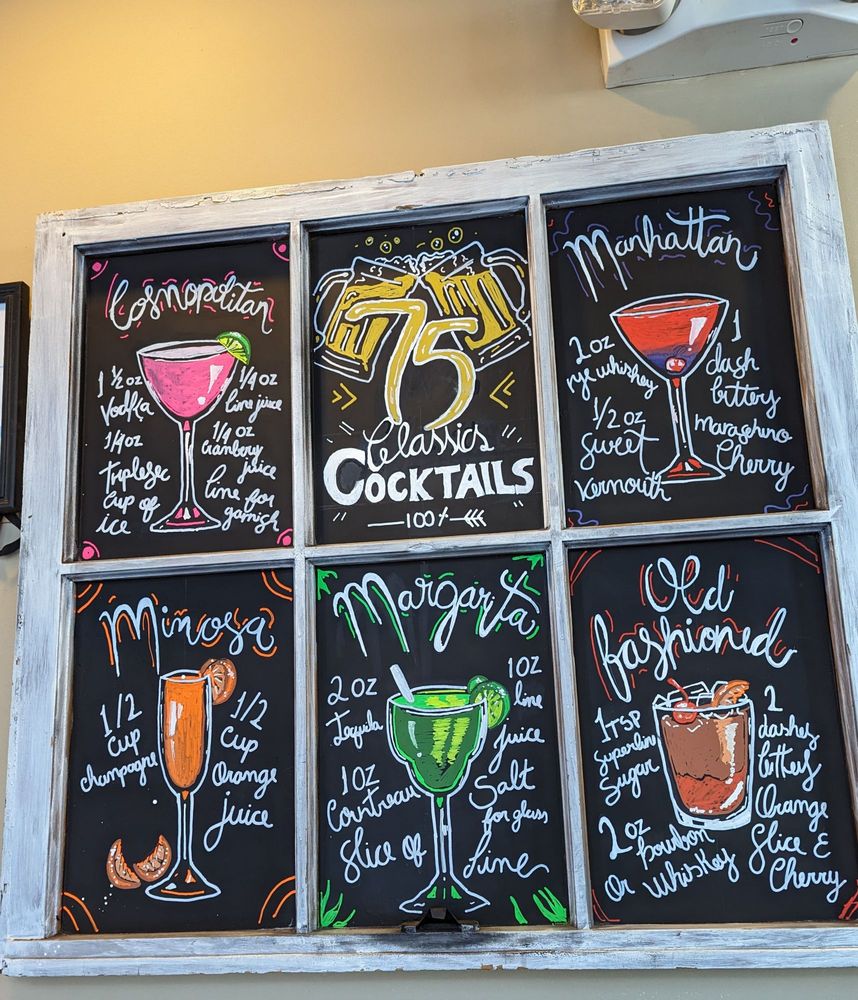 Cosmopolitan
1 ½ oz
Vodka
1/4 oz
Triplesec
Cup of
ice
1/4 oz
lime juice
1/4 oz
Cranbery
juice
lime for
garnish
75
Classics
COCKTAILS
100+
Manhattan
2 oz
rye whiskey
1/2 oz
Sweet
Vermouth
1
dash
bitters
maraschino
Cherry
Mimosa
1/2
Cup
champagne
1/2
Cup
Orange
juice
Margarita
2 OZ
Tequila
1 OZ
Cointreau
Slice of
1 OZ
lime
juice
Salt
for glass
Lime
Old
fashioned
1 TSP
Superfine
Sugar
2 OZ
bourbon
Or Whiskey
2
dashes
bitters
Orange
Slice &
Cherry